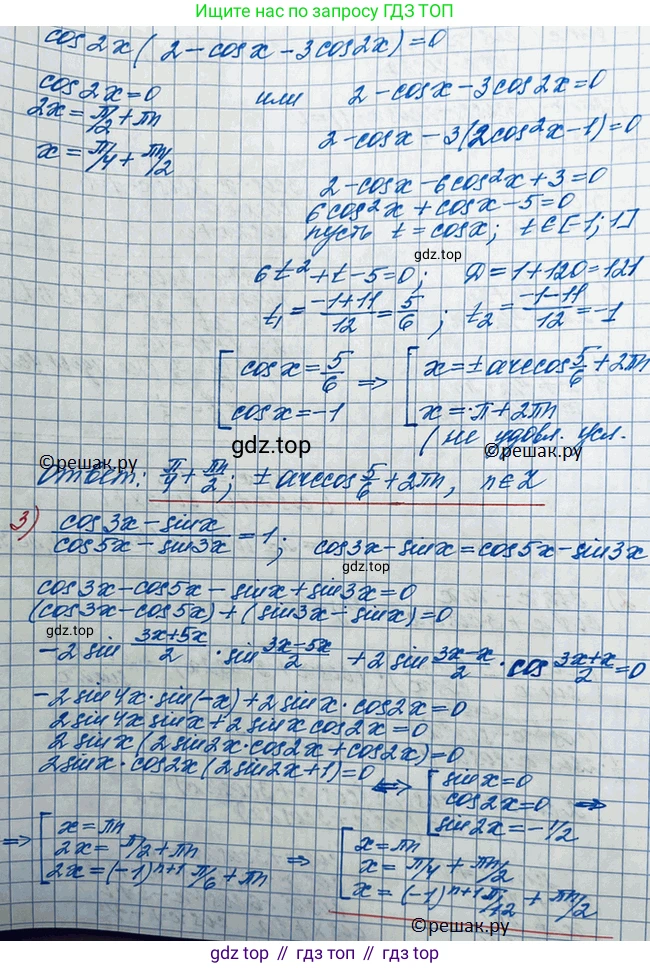 Ищите нас по запросу ГДЗ ТОП
cos2x(2-cosx-3cos2x)=0
cos2x=0 или 2-cosx-3cos2x=0
2x=π/2+πn
2-cosx-3(2cos²x-1)=0
x=π/4+πn/2
2-cosx-6cos²x+3=0
6cos²x+cosx-5=0
пусть t=cosx; t∈[-1;1]
gdz.top
6t²+t-5=0; D=1+120=121
t₁=(-1+11)/12=5/6; t₂=(-1-11)/12=-1
[cosx=5/6 ⇒ [x=±arccos5/6+2πn
cosx=-1 x=π+2πn
gdz.top (не удовл. усл.
©решак.ру
Ответ: π/4+πn/2; ±arccos5/6+2πn, n∈Z
3) (cos3x-sinx)/(cos5x-sin3x)=1; cos3x-sinx=cos5x-sin3x
cos3x-cos5x-sinx+sin3x=0
(cos3x-cos5x)+(sin3x-sinx)=0
gdz.top
-2sin (3x+5x)/2·sin (3x-5x)/2+2sin (3x-x)/2·cos (3x+x)/2=0
-2sin4x·sin(-x)+2sinx·cos2x=0
2sin4xsinx+2sinxcos2x=0
2sinx(2sin2x·cos2x+cos2x)=0
2sinx·cos2x(2sin2x+1)=0 ⇔ [sinx=0
cos2x=0 ⇒
sin2x=-1/2
⇒ [x=πn ⇒ [x=πn
2x=π/2+πn x=π/4+πn/2
2x=(-1)ⁿ⁺¹π/6+πn x=(-1)ⁿ⁺¹π/12+πn/2
©решак.ру
gdz.top // гдз.top // гдз.топ